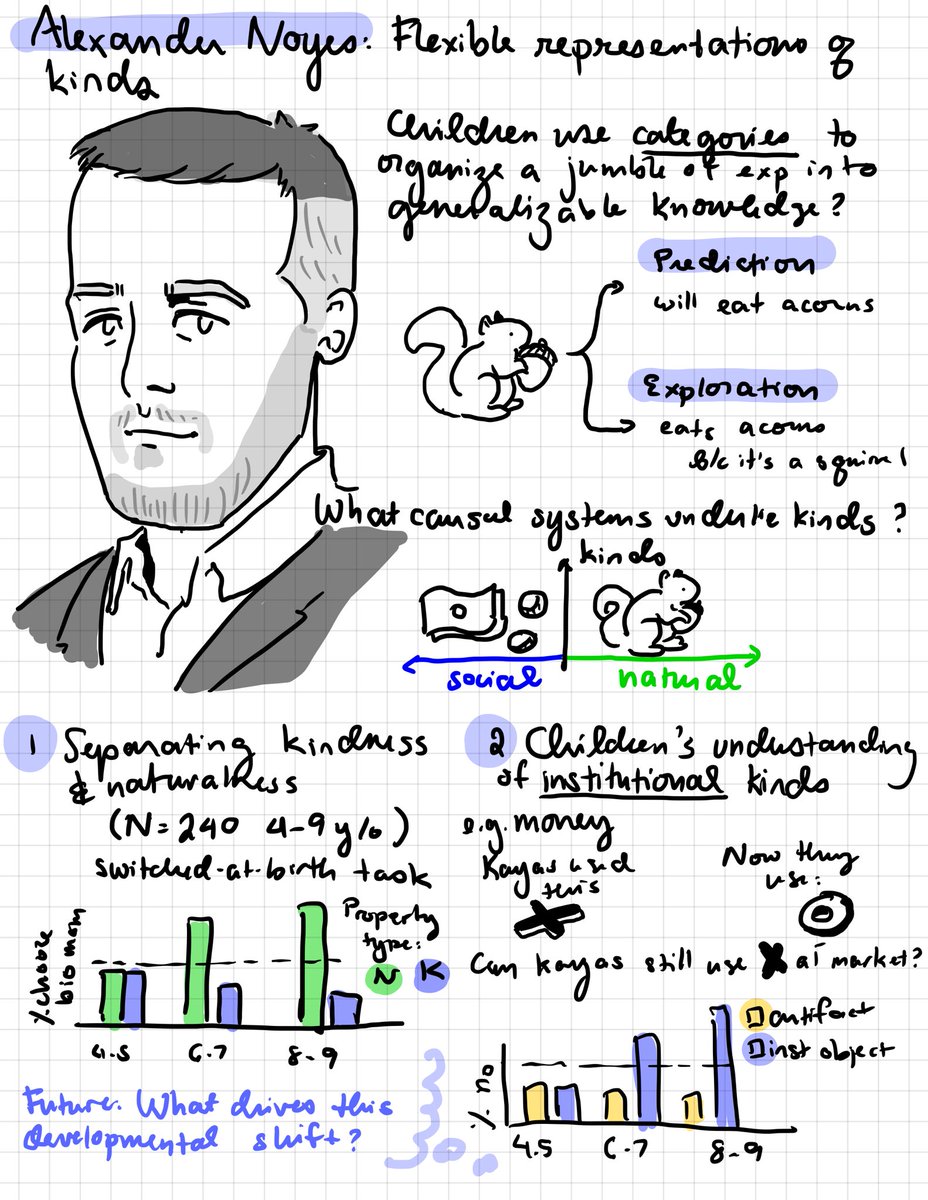 Alexander Noyes: Flexible representations of
kinds
Children use categories to
organize a jumble of exp into
generalizable knowledge?
Prediction
will eat acorns
Exploration
eats acorns
b/c it's a squirrel
What causal systems underlie kinds?
kinds
social
natural
1 Separating kindness
& naturalness
(N=240 4-9 y/o)
switched-at-birth task
% choose
bio mom
Property
type:
N K
4.5
6-7
8-9
Future: What drives this
developmental shift?
2 Children's understanding
of institutional kinds
e.g. money
Kayas used
this
Now they
use:
Can Kayas still use X at market?
artifact
inst object
% no
4.5
6-7
8-9